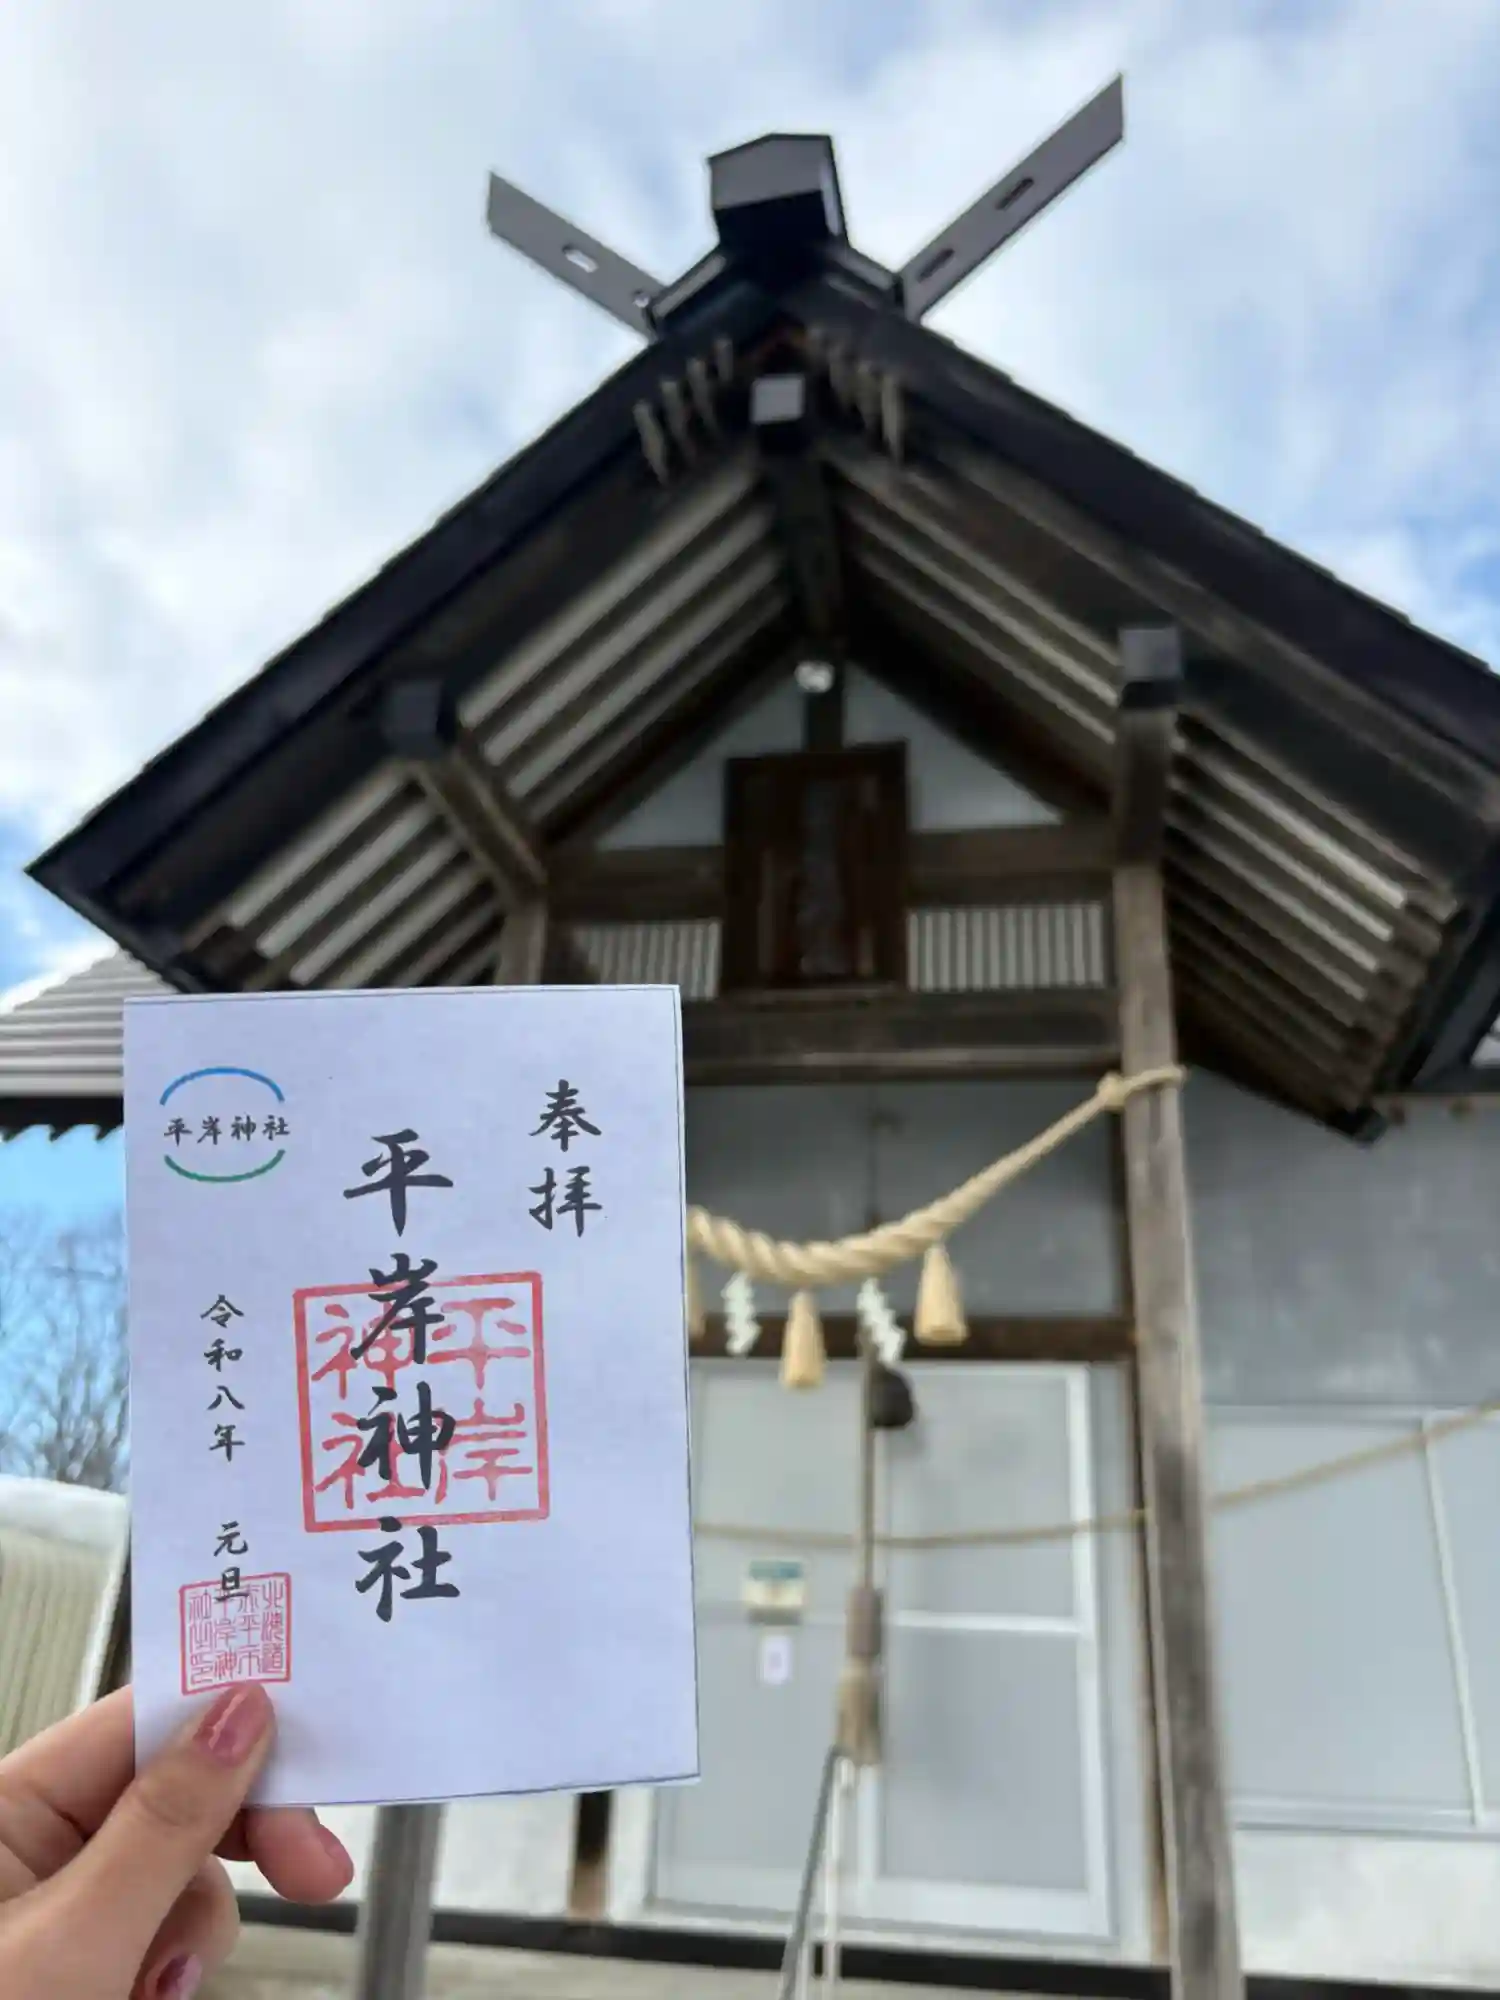 奉拝
平岸神社
平岸神社
平岸
神社
令和八年 元旦
北海道
赤平市
平岸神
社之印